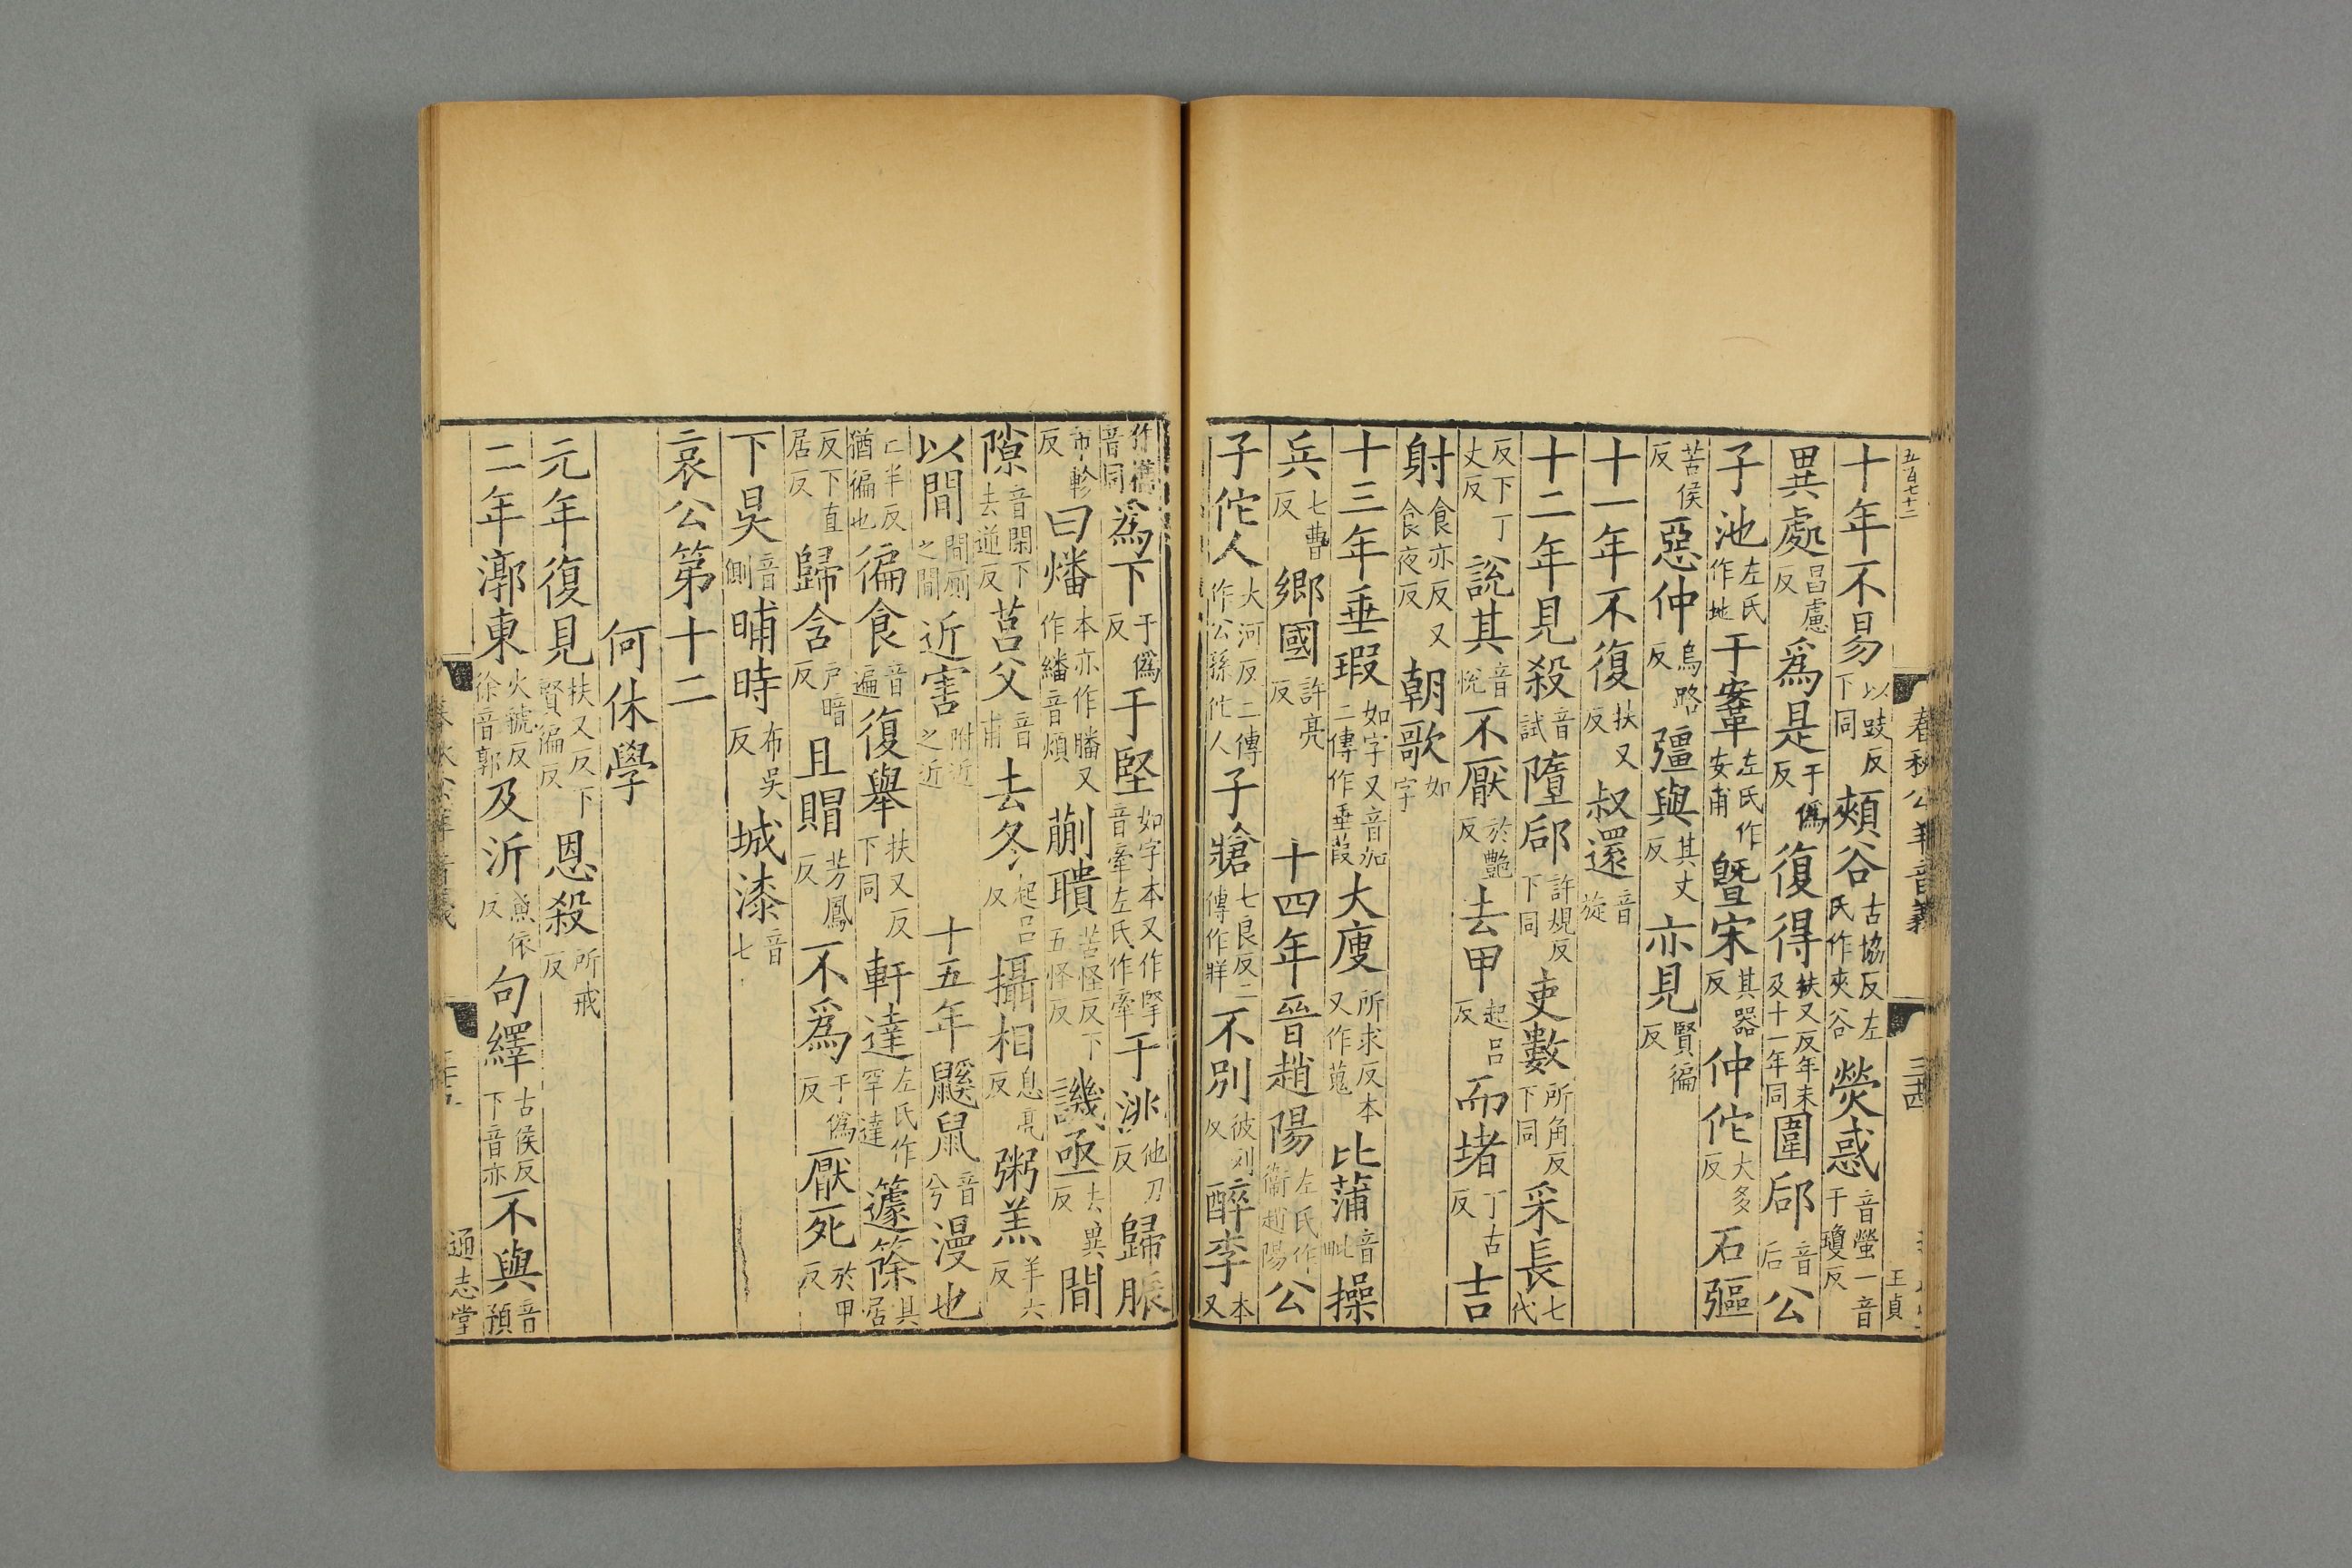 五百七十二
春秋公羊音義
三四
王貞
十年不易以豉反下同頰谷古協反左氏作夾谷熒惑音螢一音于瓊反
異處昌慮反爲是于僞反復得扶又反年末及十一年同圍郈音后公
子池左氏作地于鞌左氏作安甫曁宋其器反仲佗大多反石彄
苦侯反惡仲烏路反彊與其丈反亦見賢徧反
十一年不復扶又反叔還音旋
十二年見殺音試墮郈許規反下同吏數所角反下同采長七代
反下丁丈反說其音悅不厭於豔反去甲起呂反而堵丁古反士吉
射食亦反又食夜反朝歌如字
十三年垂瑕如字又音加二傳作垂葭大廋所求反本又作蒐比蒲音毗操
兵七曹反鄉國許亮反十四年晉趙陽左氏作衞趙陽公
子佗人大河反二傳作公孫佗人子牄七良反二傳作牂不別彼列反醉李本又
作檇音同爲下于僞反于堅如字本又作掔音牽左氏作牽于洮他刀反歸脤
市軫反曰燔本亦作膰又作繙音煩蒯聵苦怪反下五怪反譏亟去異反閒
隙音閑下去逆反莒父音甫去冬起呂反攝相息亮反粥羔羊六反
以閒閒厠之閒近害附近之近十五年鼷鼠音兮漫也
亡半反猶徧也徧食音遍復舉扶又反下同軒達左氏作罕達籧篨其居
反下直居反歸含戶暗反且賵芳鳳反不爲于僞反厭死於甲反
下昃音側晡時布吳反城漆音七
哀公第十二
何休學
元年復見扶又反下賢徧反恩殺所戒反
二年漷東火虢反徐音郭及沂魚依反句繹古侯反下音亦不與音預
通志堂